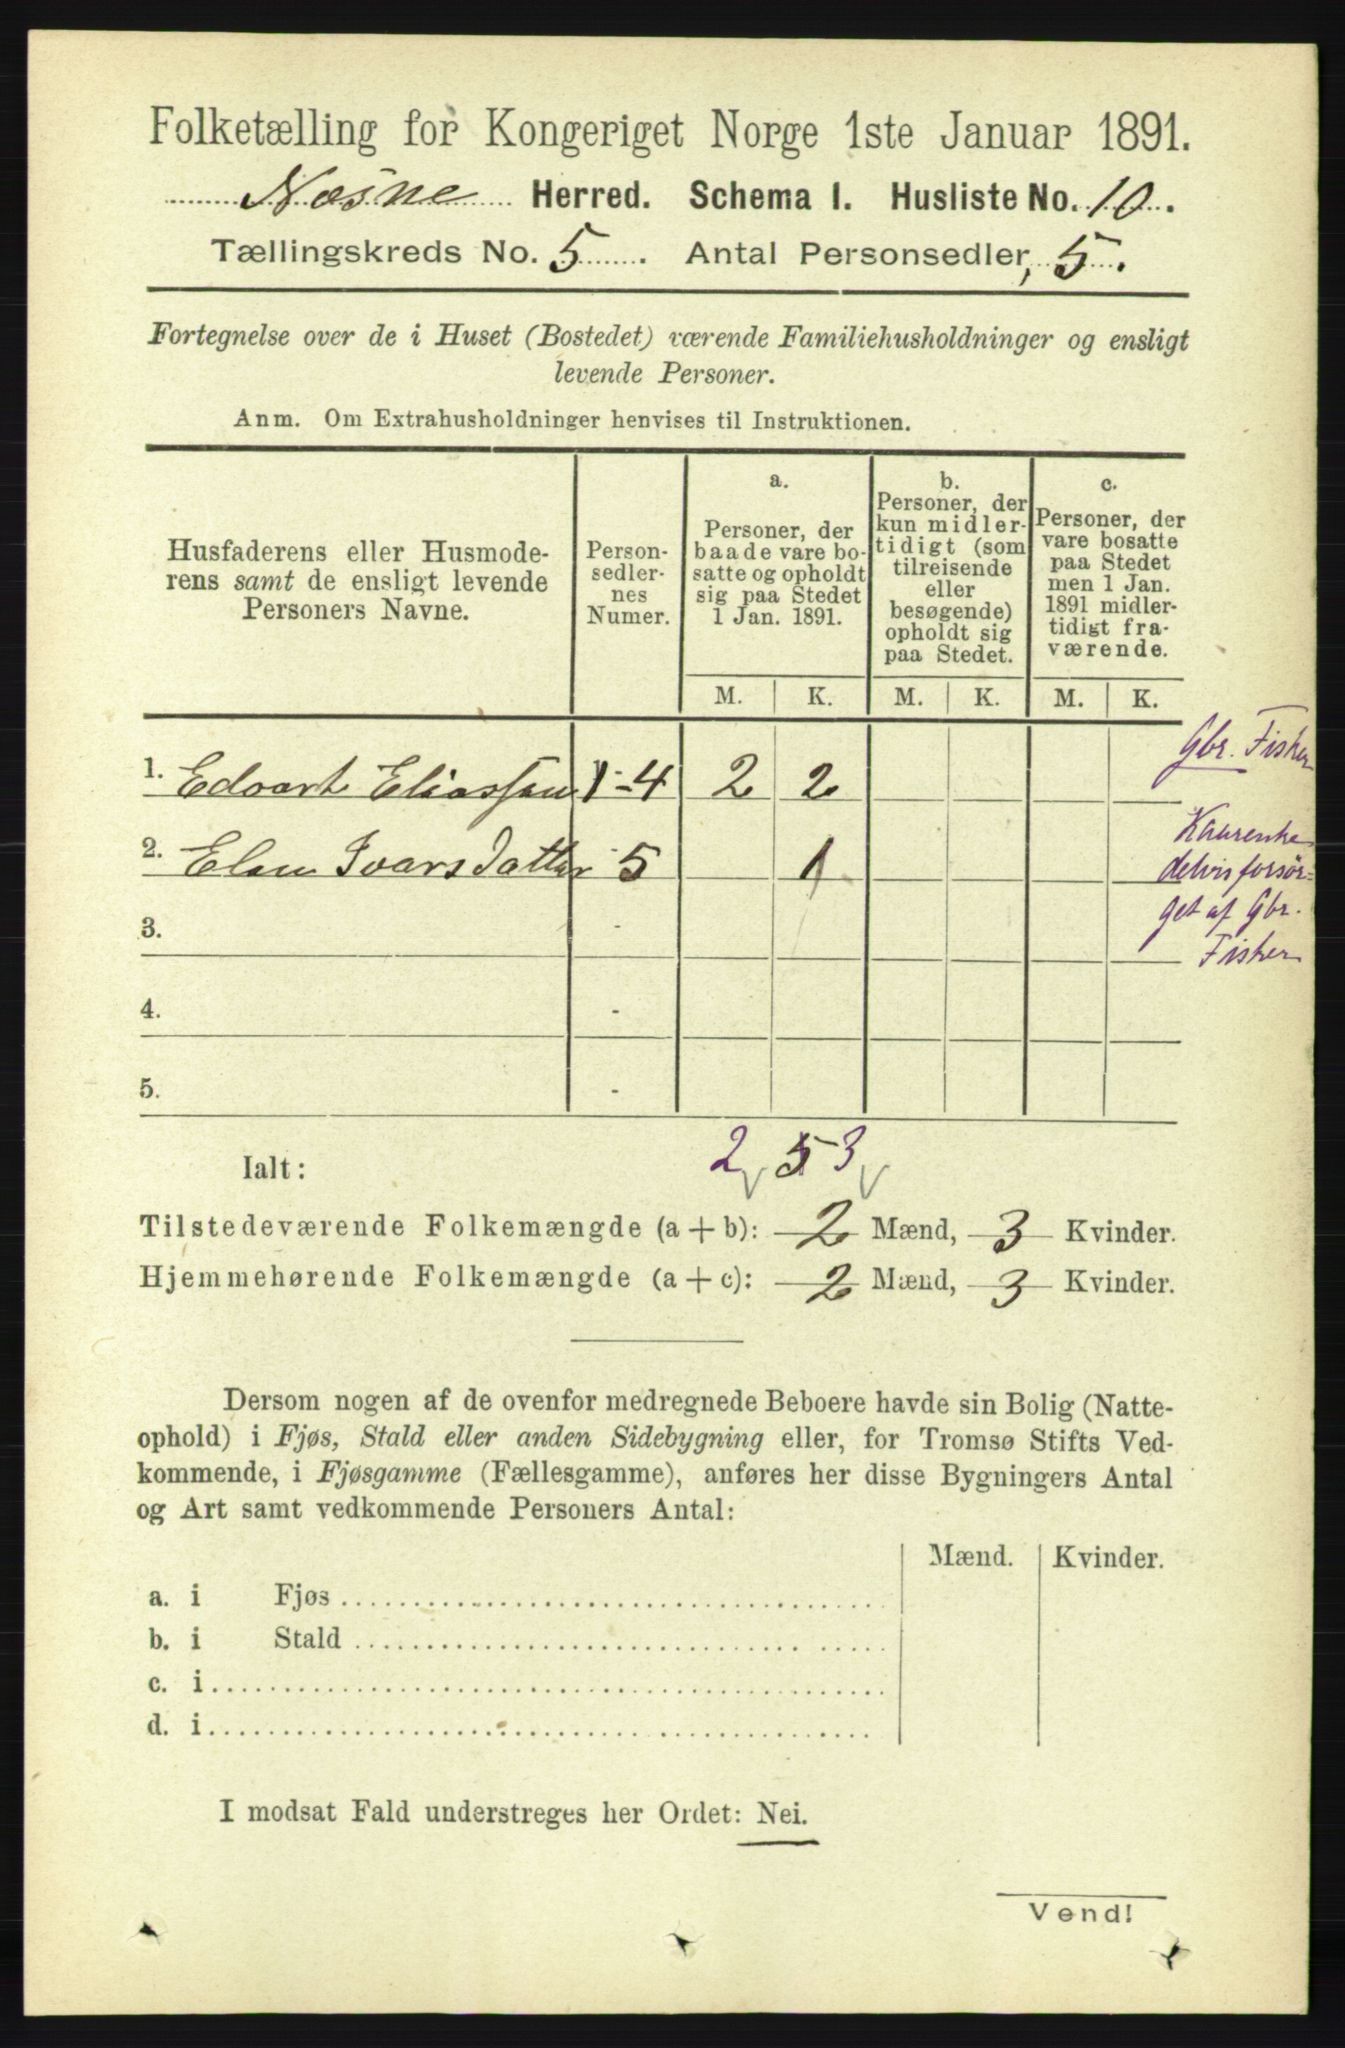 Folketælling for Kongeriget Norge 1ste Januar 1891.
Næsne Herred. Schema 1. Husliste No. 10.
Tællingskreds No. 5. Antal Personsedler, 5.
Fortegnelse over de i Huset (Bostedet) værende Familiehusholdninger og ensligt
levende Personer.
Anm. Om Extrahusholdninger henvises til Instruktionen.
Husfaderens eller Husmode-
rens samt de ensligt levende
Personers Navne.
Person-
sedler-
nes
Numer.
a.
Personer, der
baade vare bo-
satte og opholdt
sig paa Stedet
1 Jan. 1891.
b.
Personer, der
kun midler-
tidigt (som
tilreisende
eller
besøgende)
opholdt sig
paa Stedet.
c.
Personer, der
vare bosatte
paa Stedet
men 1 Jan.
1891 midler-
tidigt fra-
værende.
M. K. M. K. M. K.
Gbr. Fisker
1. Edvart Eliassen 1-4 2 2
2. Elen Ivarsdatter 5 1
delvis forsør-
get af Gbr.
Fisker
3. -
4. -
5. -
2 5 3
Ialt:
Tilstedeværende Folkemængde (a + b): 2 Mænd, 3 Kvinder.
Hjemmehørende Folkemængde (a + c): 2 Mænd, 3 Kvinder.
Dersom nogen af de ovenfor medregnede Beboere havde sin Bolig (Natte-
ophold) i Fjøs, Stald eller anden Sidebygning eller, for Tromsø Stifts Ved-
kommende, i Fjøsgamme (Fællesgamme), anføres her disse Bygningers Antal
og Art samt vedkommende Personers Antal:
Mænd. Kvinder.
a. i Fjøs
b. i Stald
c. i
d. i
I modsat Fald understreges her Ordet: Nei.
Vend!